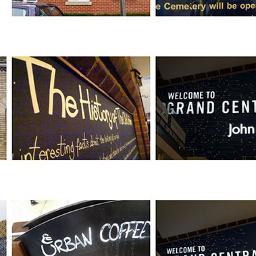 e Cemetery will be ope
The History of
interesting facts about the
WELCOME TO
GRAND CENT
John
& URBAN COFFEE
WELCOME TO
GRAND CENTRA